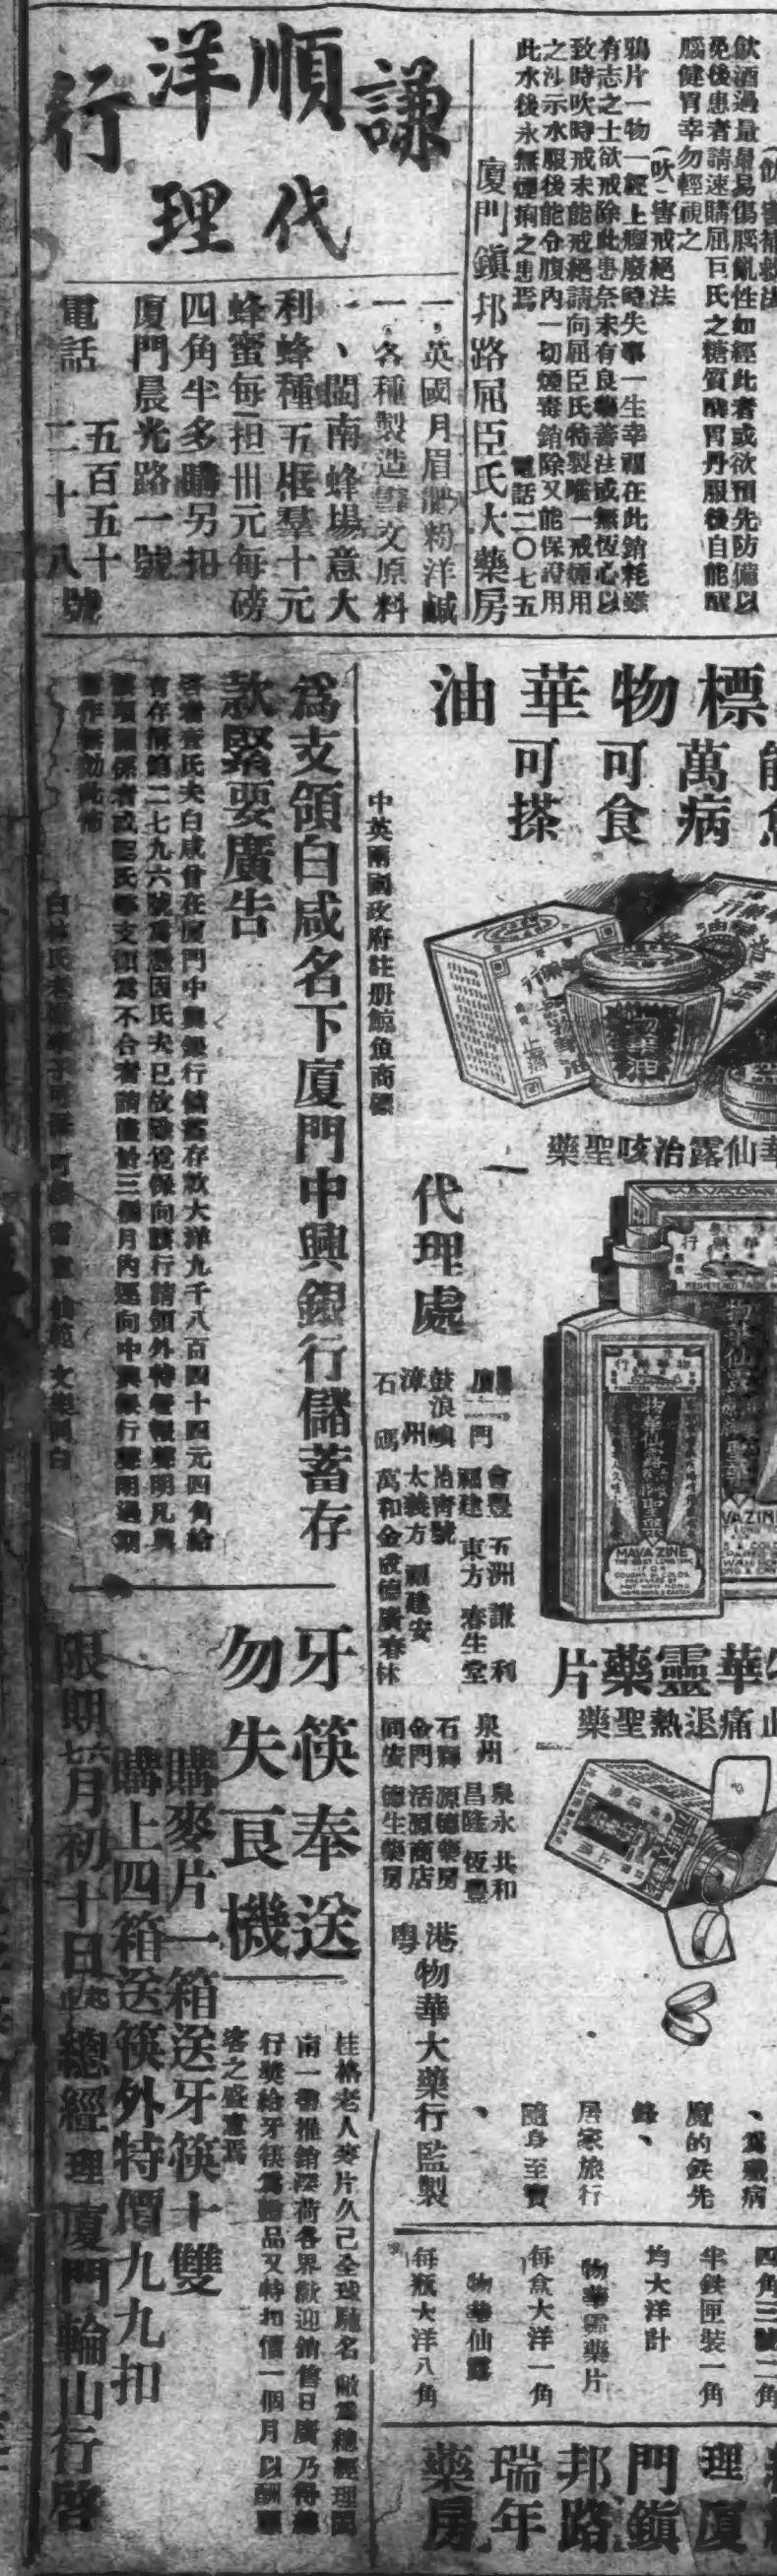 飲酒過量最易傷腦亂性如經此者或欲預先防備以
免後患者請速購屈臣氏之糖質醉胃丹服後自能醒
腦健胃幸勿輕視之
戒絕法
鴉片一物一經上癮廢時失事一生幸福在此銷耗雖
有志之士欲戒除此患奈未有良藥善法或無恆心以
致時吹時戒未能戒絕請向屈臣氏特製唯一戒煙用
之沙示水服後能令腹內一切煙毒銷除又能保證用
此水後永無煙痢之患焉
電話二〇七五
廈門鎮邦路屈臣氏大藥房
謙順洋行
代理
一，英國月眉肥粉洋鹹
一，各種製造雪文原料
一、閩南蜂場意大
利蜂種五框羣十元
蜂蜜每担卅元每磅
四角半多購另扣
廈門晨光路一號
電話
五百五十
二十八號
標物華油
萬病
可食
可搽
中英兩國政府註册鯨魚商標
物華油
止痛
華仙露治咳聖藥
MAVAZINE
FOR
COUGHS & COLDS
華靈藥片
止痛退熱聖藥
代理處
廈門
會豐 五洲 謙利
福建 東方 春生堂
鼓浪嶼
漳州
太義方 福建安
石碼
萬和金 廣春林
泉州
泉永 共和
昌隆 恆豐
源德藥房
金門
活源商店
同安
德生藥房
港粵物華大藥行監製
為殲病
魔的鋏先
鋒、
居家旅行
隨身至寶
四角三號二角
半鉄匣裝一角
均大洋計
物華靈藥片
每盒大洋一角
物華仙露
每瓶大洋八角
理廈門鎮邦路瑞年藥房
為支領白咸名下廈門中興銀行儲蓄存
款緊要廣告
氏夫白咸曾在廈門中興銀行儲蓄存款大洋九千八百四十四元四角給
有存簿第二七九六號為憑因氏夫已故除覓保向該行請領外特登報聲明凡與
為不合者請儘於三個月內逕向中興銀行聲明過期
作無効此佈
牙筷奉送
勿失良機
桂格老人麥片久已全球馳名敝為總經理閩
南一帶推銷深荷各界歡迎銷售日廣乃特舉
行獎給牙筷為贈品又特扣價一個月以酬顧
客之盛意焉
購麥片一箱送牙筷十雙
購上四箱送筷外特價九九扣
總經理廈門輪山行啓